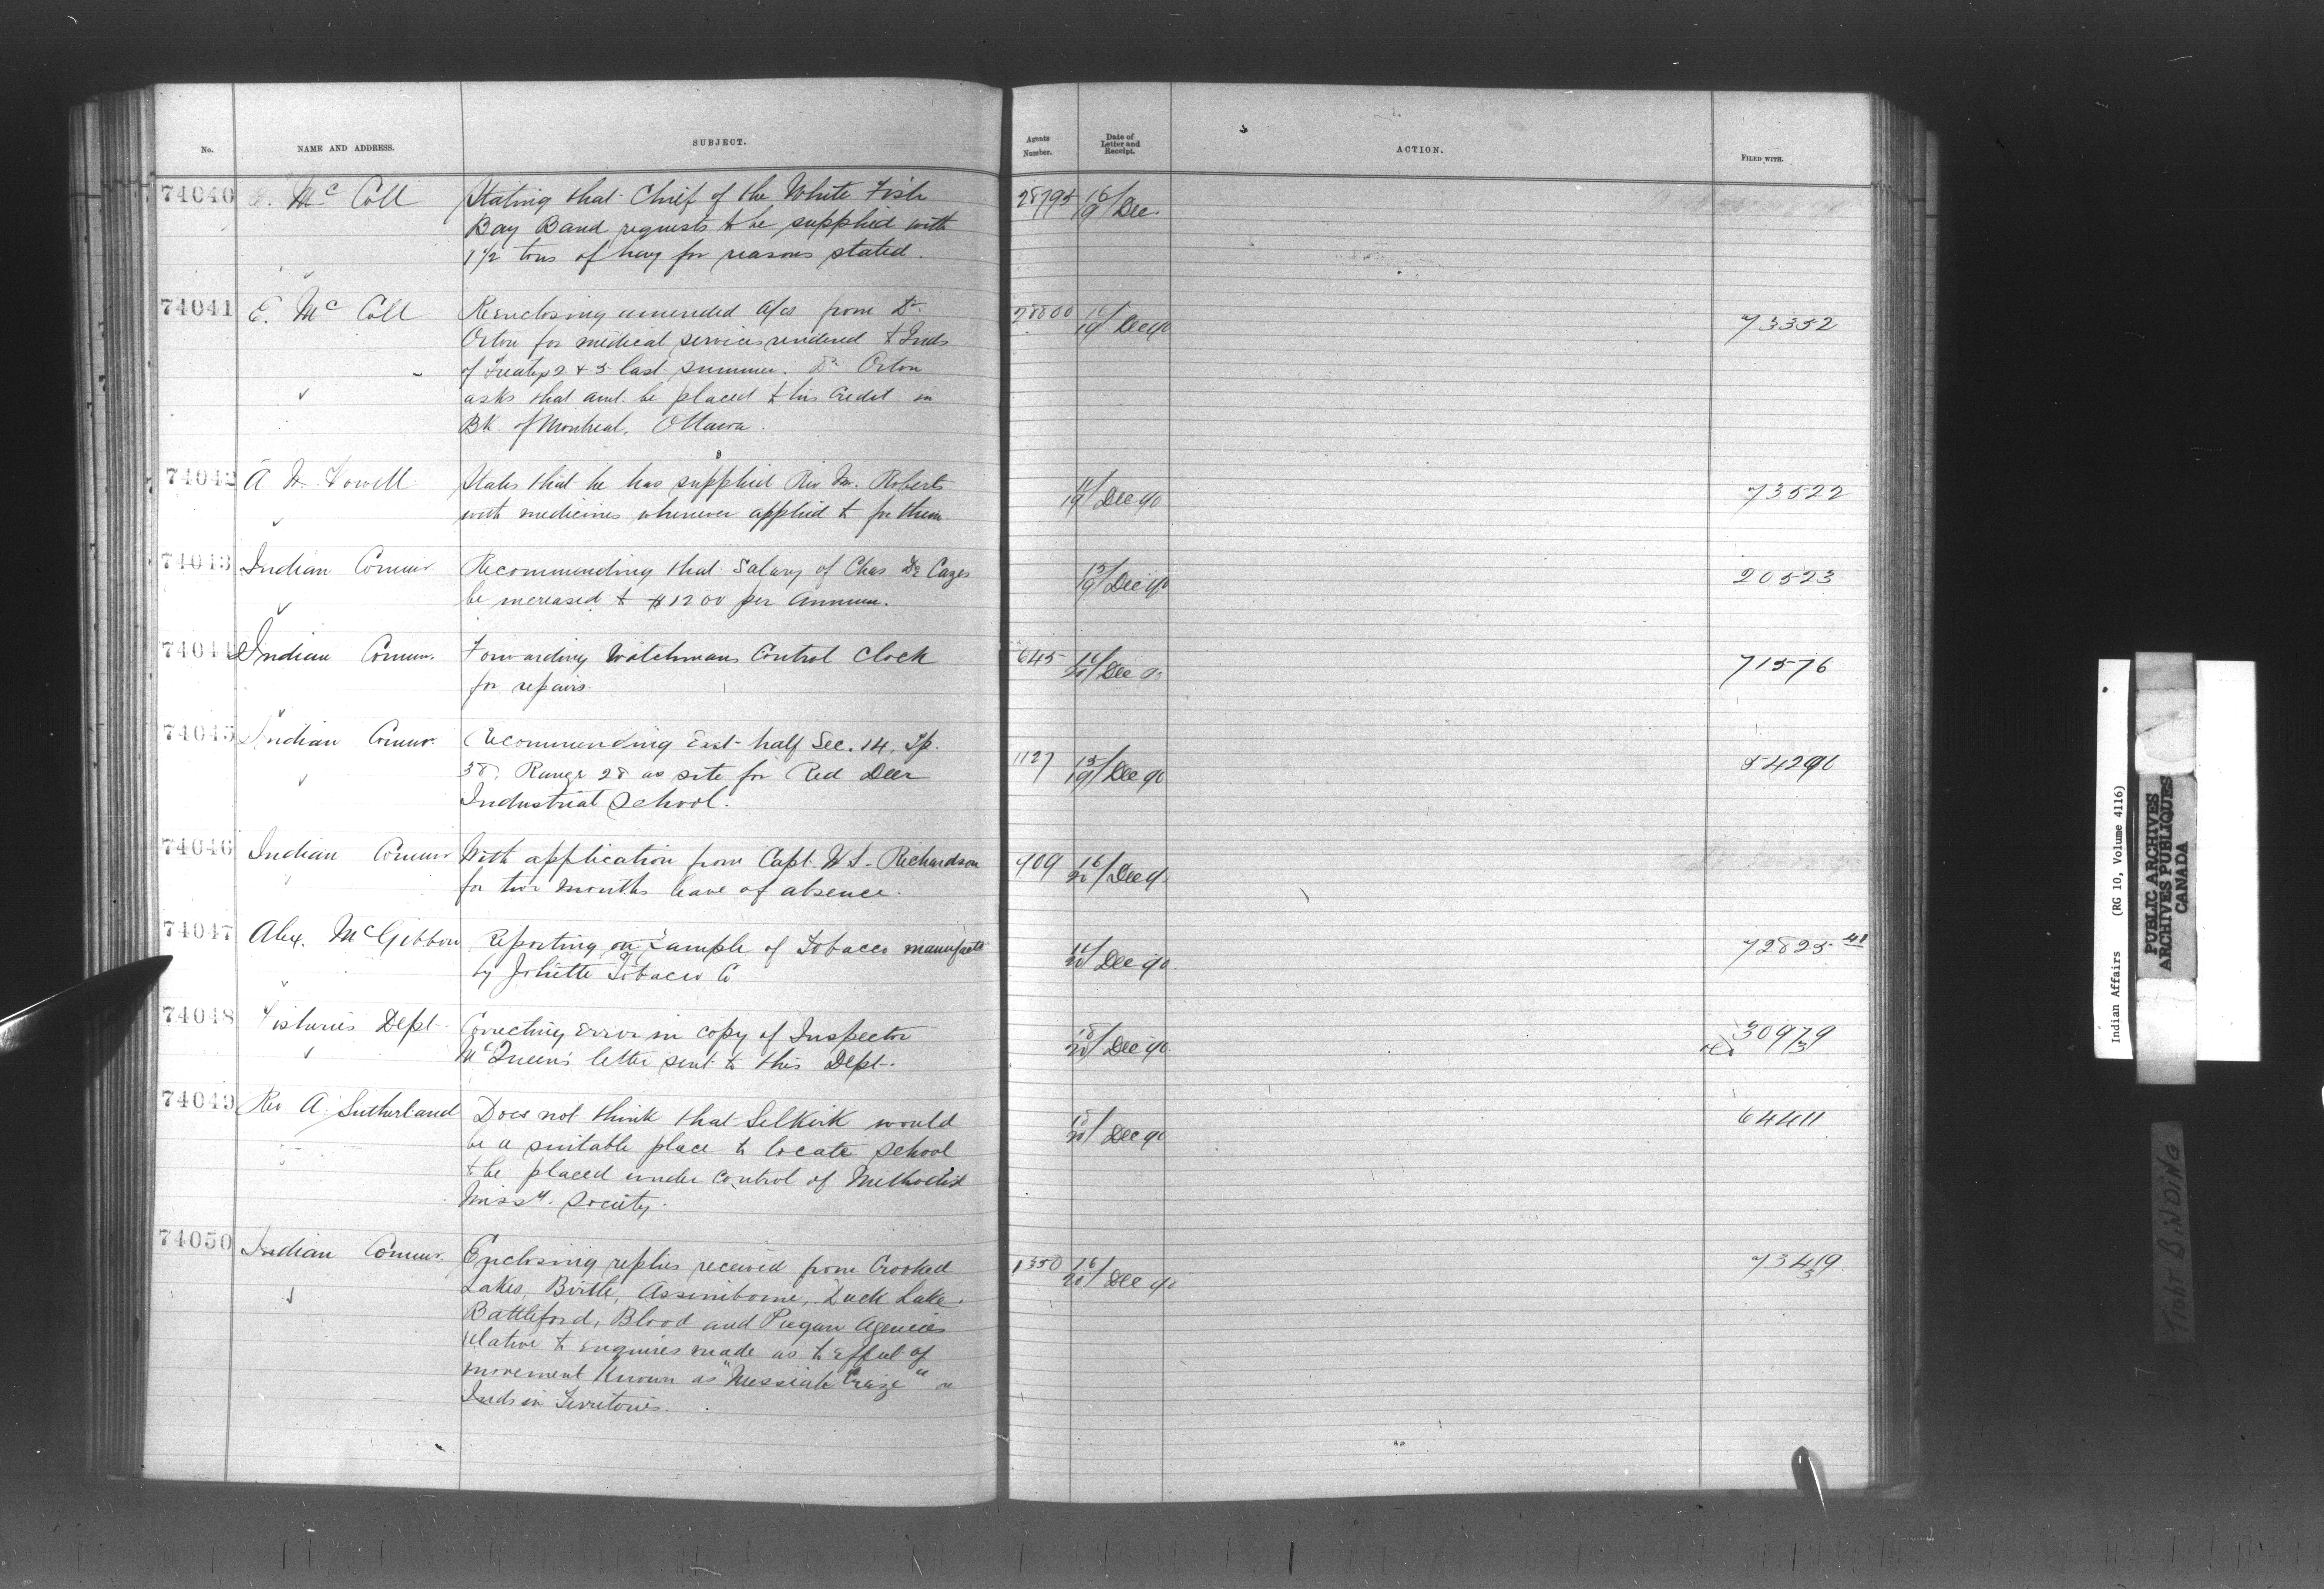 No. NAME AND ADDRESS. SUBJECT. Agents Number. Date of Letter and Receipt. ACTION. FILED WITH.
74040 E. McColl Stating that Chief of the White Fish 28795 16/19 Dec.
Bay Band requests to be supplied with
1 1/2 tons of hay for reasons stated.
74041 E. McColl Reenclosing amended a/cs from Dr 28800 16/19 Dec 90 73352
Orton for medical services rendered to Inds
of Treaties 2 & 5 last summer. Dr Orton
asks that amt. be placed to his credit in
BK. of Montreal, Ottawa.
74042 A W Vowell States that he has supplied Rev Mr. Roberts 11/19 Dec 90 73522
with medicines whenever applied to for them
74043 Indian Commr. Recommending that Salary of Chas De Cazes 15/19 Dec 90 20523
be increased to $1200 per Annum.
74044 Indian Commr. Forwarding Watchmans Control Clock 645 16/20 Dec 71576
for repairs.
74045 Indian Commr. Recommending East half Sec. 14, Tp. 1127 15/19 Dec 90 54290
38, Range 28 as site for Red Deer
Industrial School.
74046 Indian Commr With application from Capt. W S. Richardson 909 16/20 Dec 90
for two months leave of absence.
74047 Alex. McGibbon Reporting on Sample of Tobacco manufactd /20 Dec 90 72825 41
by Joliette Tobacco Co
74048 Fisheries Dept Correcting Error in copy of Inspector 18/20 Dec 90 30979/3
McQueen's letter sent to this Dept.
74049 Rev A. Sutherland Does not think that Selkirk would /20 Dec 90 64411
be a suitable place to locate School
to be placed under control of Methodist
Missy. Society.
74050 Indian Commr. Enclosing replies received from Crooked 1350 16/20 Dec 90 73419/3
Lakes, Birtle, Assiniboine, Duck Lake,
Battleford, Blood and Piegan Agencies
relative to enquiries made as to effect of
movement known as "Messiah Craze" on
Inds in Territories.
Indian Affairs (RG 10, Volume 4116)
PUBLIC ARCHIVES
ARCHIVES PUBLIQUES
CANADA
Tight BINDING